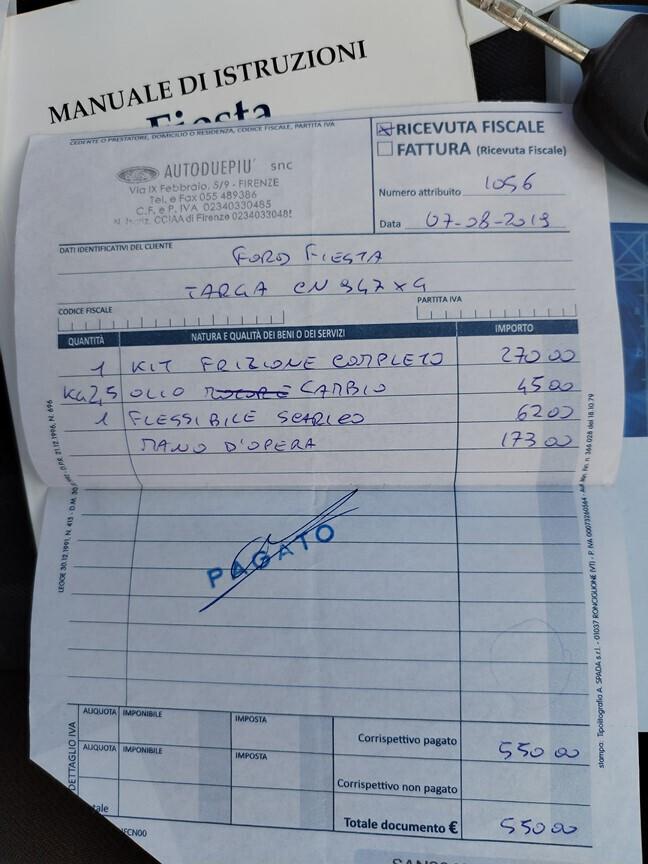 MANUALE DI ISTRUZIONI
Fiesta
CEDENTE O PRESTATORE, DOMICILIO O RESIDENZA, CODICE FISCALE, PARTITA IVA
AUTODUEPIU' snc
Via IX Febbraio, 5/9 - FIRENZE
Tel. e Fax 055 489386
C.F. e P. IVA 02340330485
CCIAA di Firenze 0234033048
RICEVUTA FISCALE
FATTURA (Ricevuta Fiscale)
Numero attribuito 1056
Data 07-08-2019
DATI IDENTIFICATIVI DEL CLIENTE
FORD FIESTA
TARGA CN 947 XG
CODICE FISCALE
PARTITA IVA
QUANTITÀ NATURA E QUALITÀ DEI BENI O DEI SERVIZI IMPORTO
1 KIT FRIZIONE COMPLETO 270 00
KG 2,5 OLIO MOTORE CAMBIO 45 00
1 FLESSIBILE SCARICO 62 00
MANO D'OPERA 173 00
PAGATO
DETTAGLIO IVA
ALIQUOTA IMPONIBILE IMPOSTA
ALIQUOTA IMPONIBILE IMPOSTA
Corrispettivo pagato 550 00
Corrispettivo non pagato
Totale documento € 550 00
LEGGE 30.12.1991, N. 413 - D.M. 30
D.P.R. 21.12.1996, N. 696
stampa: Tipolitografia A. SPADA s.r.l. - 01037 RONCIGLIONE (VT) - P. IVA 00073260564 - Aut. Min. Fin. n. 366.028 del 18.10.79